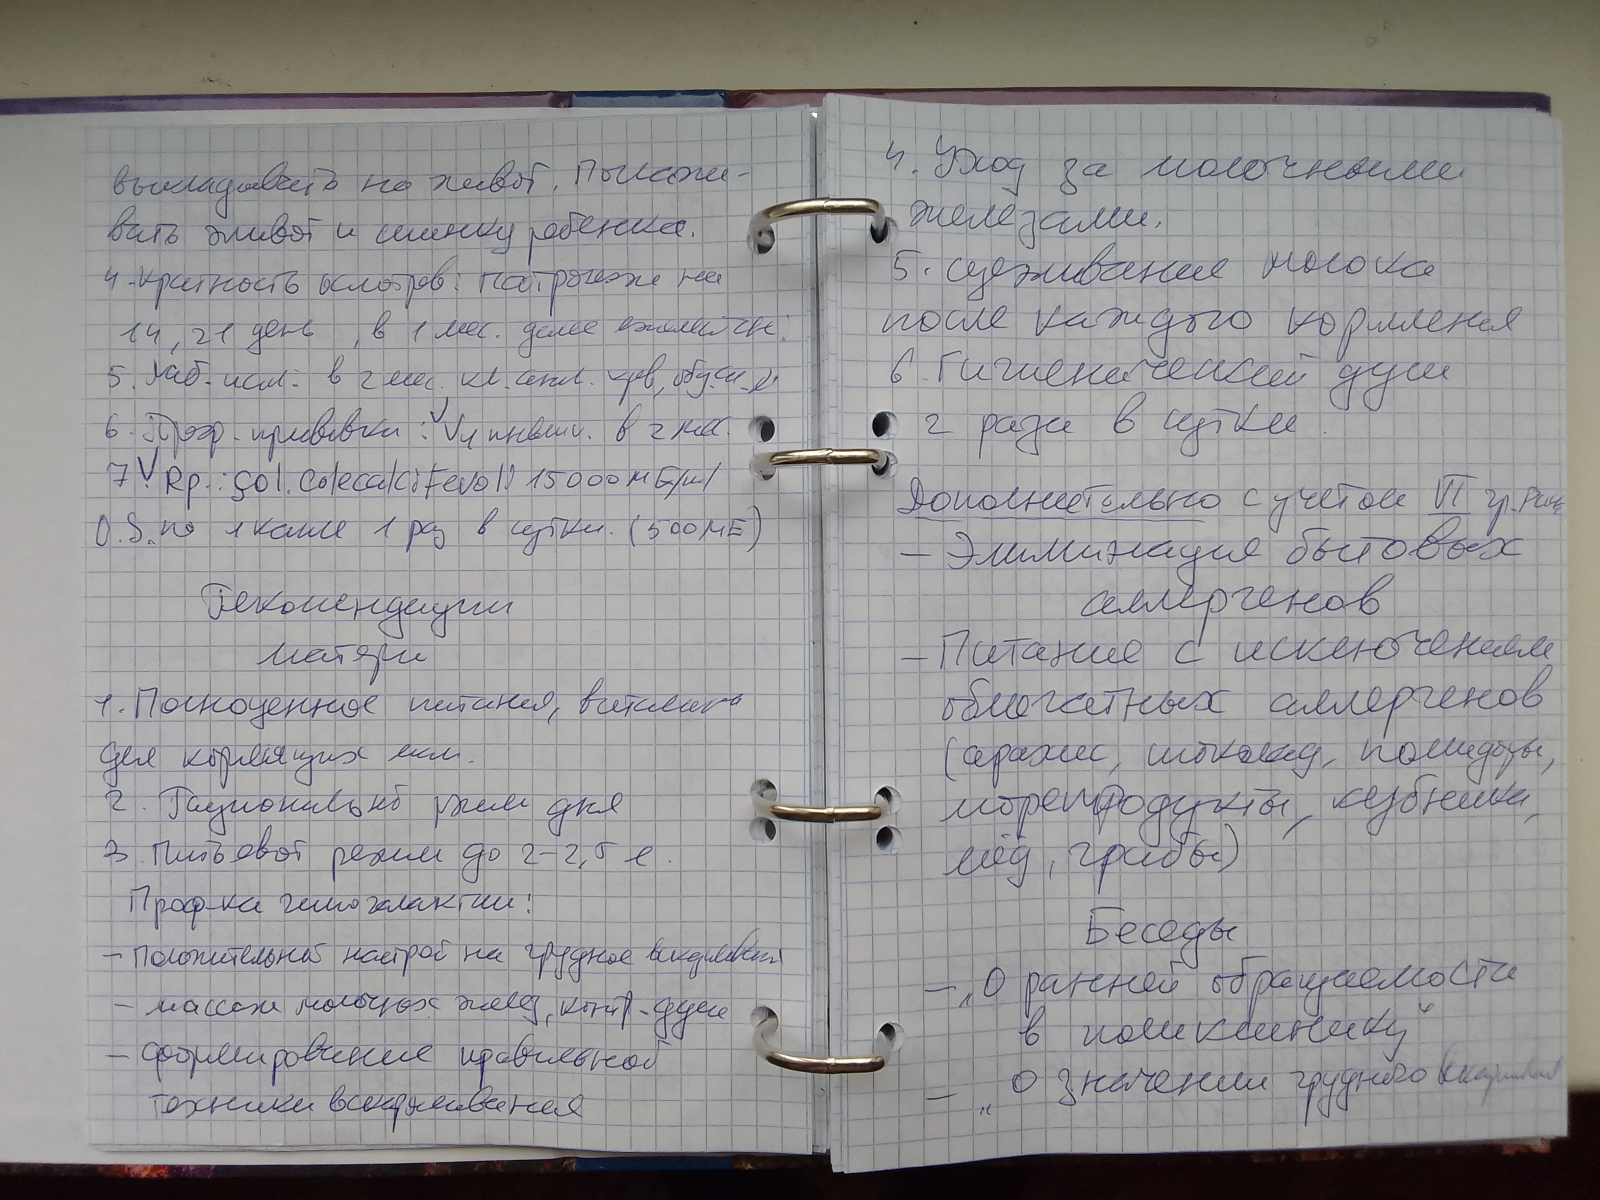 выкладывать на живот. Поглажи-
вать живот и спинку ребёнка.
4. Кратность осмотров: патронаж на
14, 21 день, в 1 мес. далее ежемесячн.
5. Лаб. исл. в 2 мес. кл. анл. крв, общ. ан. м
6. Проф. прививки: V V пневм. в 2 мес.
7. V Rp.: Sol. Colecalciferoli 15000МЕ/ml
D.S. по 1 капле 1 раз в сутки. (500МЕ)
Рекомендации
матери
1. Полноценное питание, витамины
для кормящих мам.
2. Рациональнй режим дня
3. Питьевой режим до 2-2,5 л.
Проф-ка гипогалактии:
- положительный настрой на грудное вскармливание
- массаж молочных желез, контр-душ
- формирование правильной
техники вскармливания
4. Уход за молочными
железами.
5. сцеживание молока
после каждого кормления
6. Гигиенический душ
2 раза в сутки.
Дополнительно с учетом VI гр. риска
- Элиминация бытовых
аллергенов
- Питание с исключением
облигатных аллергенов
(арахис, шоколад, помидоры,
морепродукты, клубника,
мёд, грибы)
Беседы
- „О ранней обращаемости
в поликлинику"
- „О значении грудного вскармливания